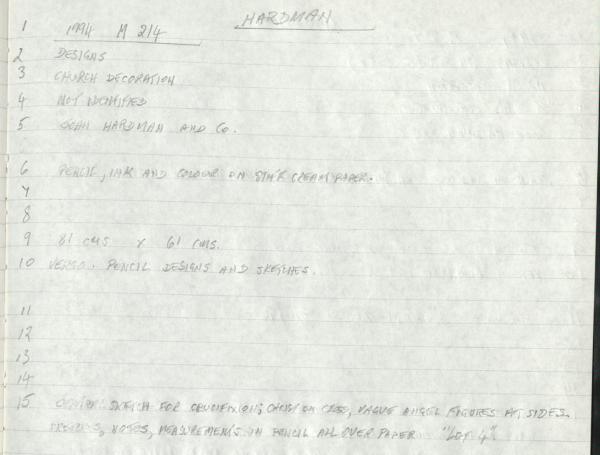 HARDMAN
1 1994 M 214
2 DESIGNS
3 CHURCH DECORATION
4 NOT IDENTIFIED
5 JOHN HARDMAN AND CO.
6 PENCIL, INK AND COLOUR ON CREAM PAPER.
7
8
9 81 CMS x 61 CMS.
10 VERSO. PENCIL DESIGNS AND SKETCHES.
11
12
13
14
15 SKETCH FOR CRUCIFIXION; CHRIST ON CROSS, VAGUE ANGEL FIGURES AT SIDES.
NOTES, MEASUREMENTS IN PENCIL ALL OVER PAPER "LOT 4"